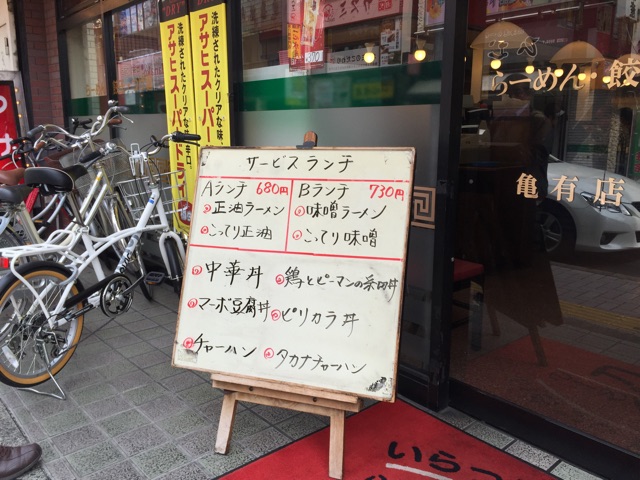 サービスランチ
Aランチ 680円
正油ラーメン
こってり正油
Bランチ 730円
味噌ラーメン
こってり味噌
中華丼
鶏とピーマンの糸切丼
マーボ豆腐丼
ピリカラ丼
チャーハン
タカナチャーハン
洗練されたクリアな味、
アサヒスーパー
洗練されたクリアな味、辛口。
アサヒスーパードライ
らーめん・餃
亀有店
いらっ